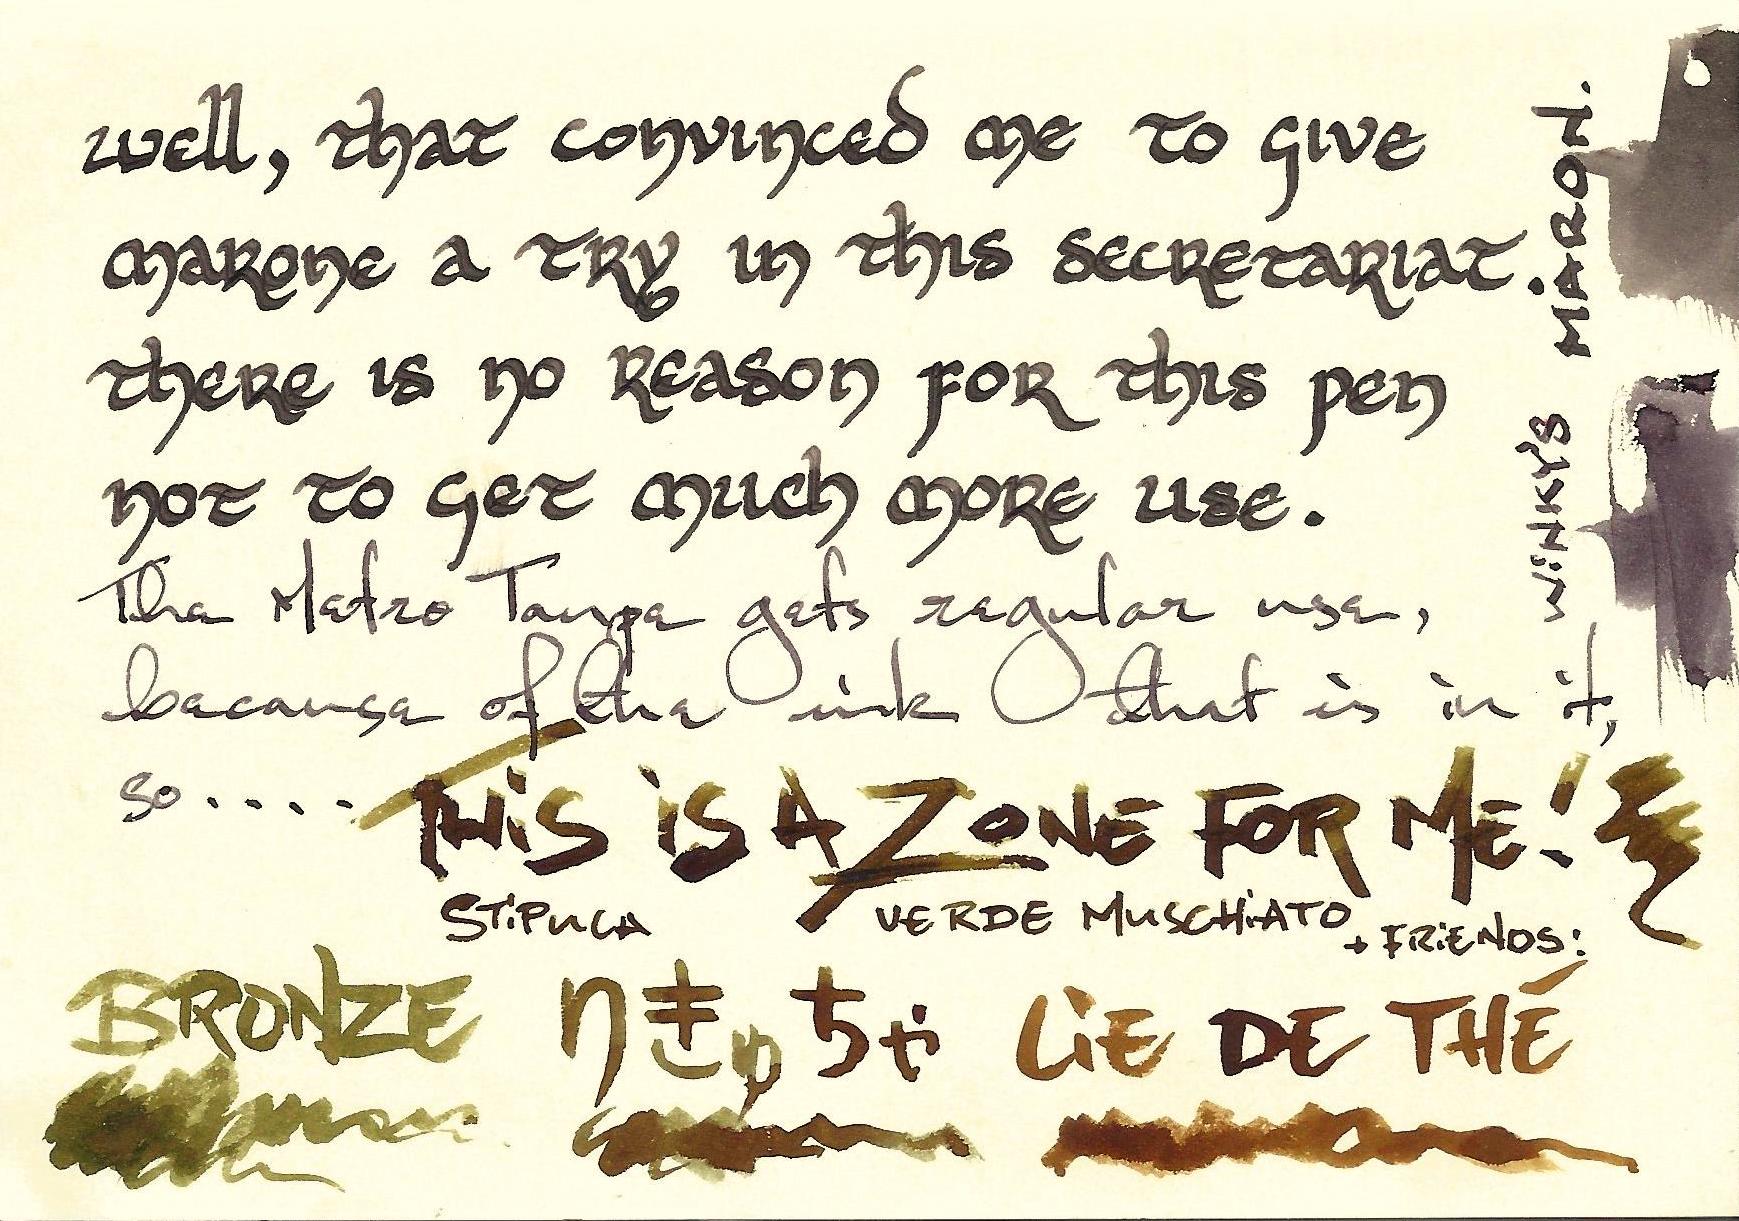 well, that convinced me to give
marone a try in this secretariat.
there is no reason for this pen
not to get much more use.
The Metro Taupe gets regular use,
because of the ink that is in it,
so....
THiS iS A ZONE FOR ME!
STiPULA VERDE MUSCHiATO
+ FRiENDS:
BRONZE りきゅちゃ LiE DE THÉ
WiNKY'S MARON.